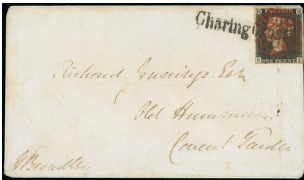 Charing Cross
ONE PENNY
Richard Jennings Esq
Old Hummums
Covent Garden